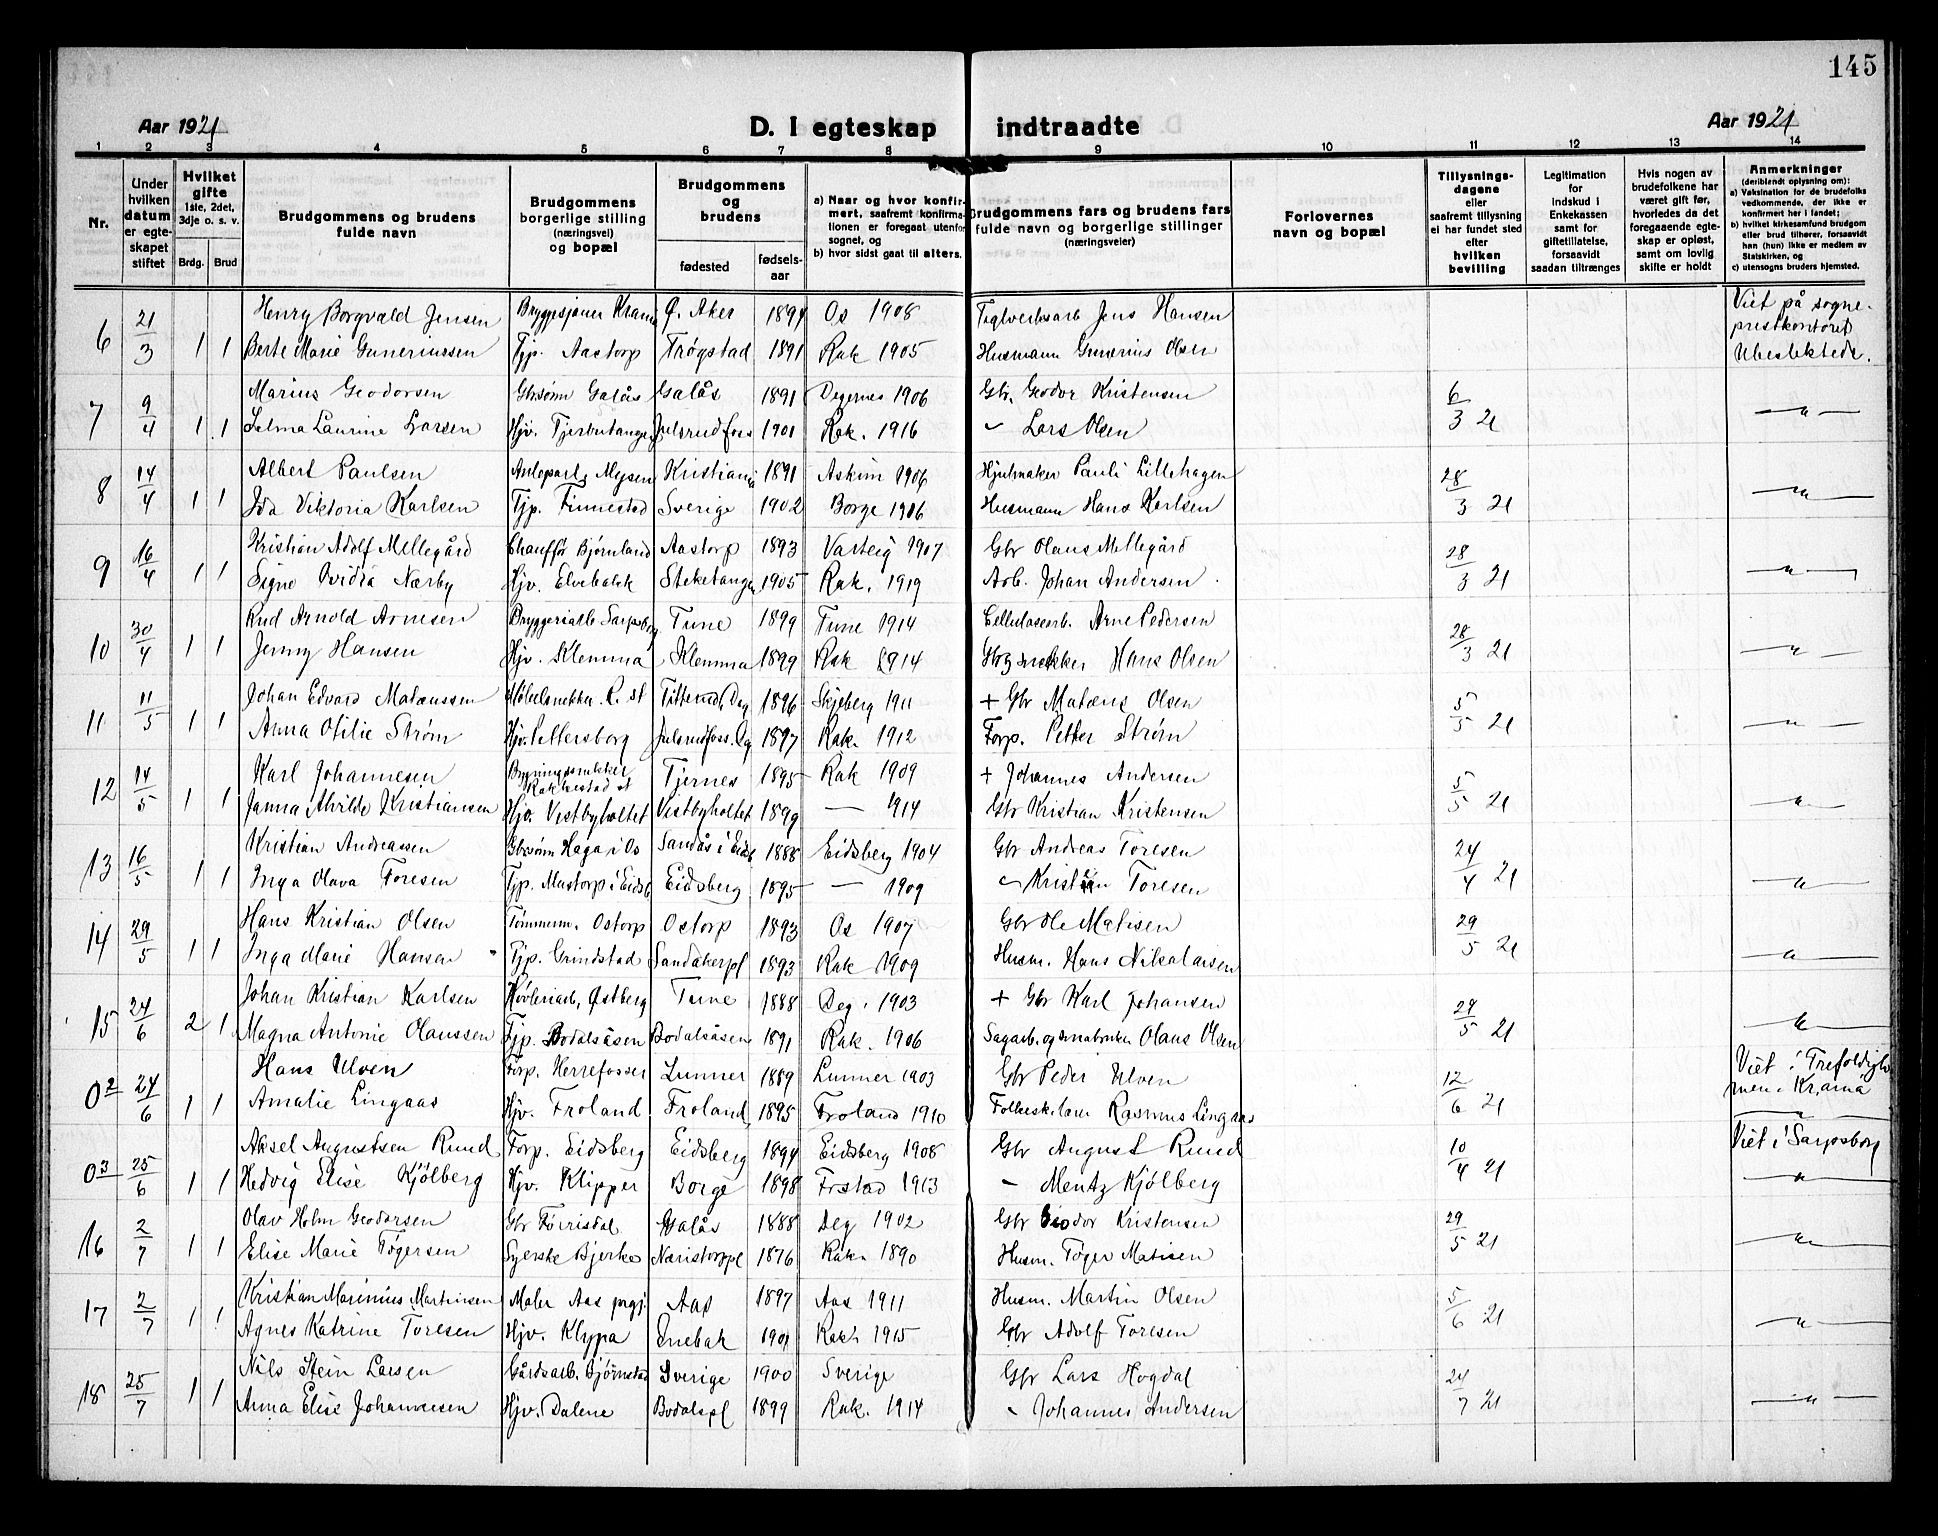 145
Aar 1921
D. I egteskap indtraadte
Aar 1921
1 2 3 4 5 6 7 8 9 10 11 12 13 14
Nr.
Under hvilken datum er egteskapet stiftet
Hvilket gifte 1ste, 2det, 3dje o. s. v.
Brdg. Brud
Brudgommens og brudens fulde navn
Brudgommens borgerlige stilling (næringsvei) og bopæl
Brudgommens og brudens
fødested fødsels-aar
a) Naar og hvor konfirmert, saafremt konfirmationen er foregaat utenfor sognet, og
b) hvor sidst gaat til alters.
Brudgommens fars og brudens fars fulde navn og borgerlige stillinger (næringsveier)
Forlovernes navn og bopæl
Tillysnings-dagene eller saafremt tillysning ei har fundet sted efter hvilken bevilling
Legitimation for indskud i Enkekassen samt for giftetillatelse, forsaavidt saadan tiltrænges
Hvis nogen av brudefolkene har været gift før, hvorledes da det foregaaende egteskap er opløst, samt om lovlig skifte er holdt
Anmerkninger (deriblendt oplysning om): a) Vaksination for de brudefolks vedkommende, der ikke er konfirmert her i landet; b) hvilket kirkesamfund brudgom eller brud tilhører, forsaavidt han (hun) ikke er medlem av Statskirken, og c) utensogns bruders hjemsted.
Henry Borgvald Jensen Ø. Aker 1894 Os 1908 Teglverksarb Jens Hansen Viet på sogne-
prestkontoret
6 21/3 1 1 Berte Marie Guneriussen Tjp. Aastorp Trøgstad 1891 Rak 1905 Husmann Gunerius Olsen Ubeslektede.
Marius Geodorsen Gbrsønn Galås Galås 1891 Degernes 1906 Gbr. Geodor Kristensen
7 9/4 1 1 Selma Laurine Larsen Hjv. Julsrudfoss 1901 Rak. 1916 " Lars Olsen 6/3 21 — " —
Albert Paulsen Mysen Kristiania 1891 Askim 1906 Hjulmaker Pauli Lillehagen
8 14/4 1 1 Ida Viktoria Karlsen Tjp. Finnestad Sverige 1902 Borge 1916 Husmann Hans Karlsen 28/3 21 — " —
Kristian Adolf Mellegård Chauffør Bjørnland Aastorp 1893 Varteig 1907 Gbr Olaus Mellegård
9 16/4 1 1 Signe Ovidia Nærby Hjv. Elvebakk Steketangen 1905 Rak. 1919 Arb. Johan Andersen 28/3 21 — " —
Rud Arnold Arnesen Bryggeriarb Sarpsborg Tune 1899 Tune 1914 Cellulosearb. Arne Pedersen
10 30/4 1 1 Jenny Hansen Hjv. Klemma Klemma 1899 Rak 1914 Hans Olsen 28/3 21 — " —
Johan Edvard Matæussen Møbelsnekker R. st 1896 Skjeberg 1911 + Gbr Matæus Olsen
11 11/5 1 1 Anna Otilie Strøm Hjv. Pettersborg Julsrudfoss. Dg 1897 Rak. 1912 Forp. Petter Strøm 5/5 21 — " —
Karl Johannesen Bygningssnekker Rakkestad st Tjernes 1895 Rak 1909 + Johannes Andersen
12 14/5 1 1 Janna Alvilde Kristiansen Hjv Vestbyholtet Vestbyholtet 1899 — 1914 Gbr Kristian Kristensen 5/5 21 — " —
Kristian Andreassen Gbrsønn Haga i Os Sandås i Eidsb 1888 Eidsberg 1904 Gbr Andreas Toresen
13 16/5 1 1 Inga Olava Toresen Tjp. Mastorp i Eidsb Eidsberg 1895 — 1909 " Kristian Toresen 24/4 21 — " —
Hans Kristian Olsen Tømmerm. Ostorp Ostorp 1893 Os 1907 Gbr Ole Matisen
14 29/5 1 1 Inga Marie Hansen Tjp. Grindstad Sandakerpl 1893 Rak 1909 Husm. Hans Nikolaisen 29/5 21 — " —
Johan Kristian Karlsen Høvleriarb, Østberg Tune 1888 Deg. 1903 + Gbr Karl Johansen
15 24/6 2 1 Magna Antonie Olaussen Tjp. Bodalsåsen Bodalsåsen 1891 Rak. 1906 Sagarb. og småbruker Olaus Olsen 29/5 21 — " —
Hans Ulven Forp. Herrefosser Lunner 1889 Lunner 1903 Gbr Peder Ulven Viet i Trefoldigh
men i Kr.ania
02 24/6 1 1 Amalie Lingaas Hjv. Froland Froland 1895 Froland 1910 Folkeskolelærer Rasmus Lingaas 12/6 21
Aksel Augustsen Rund Forp. Eidsberg Eidsberg 1894 Eidsberg 1908 Gbr August Rund Viet i Sarpsborg
03 25/6 1 1 Hedvig Elise Kjölberg Hjv. Klipper Borge 1898 Frstad 1913 " Mentz Kjölberg 10/4 21 — " —
Olav Holm Geodorsen Gbr Førrisdal Galås 1888 Deg 1902 Gbr Geodor Kristensen
16 2/7 1 1 Elise Marie Tøgersen Syerske Bjerke Naristorppl 1876 Rak. 1890 Husm. Tøger Matisen 29/5 21 — " —
Kristian Marinius Martinsen Maler Aas prgj. Aas 1897 Aas 1911 Husm. Martin Olsen
17 2/7 1 1 Agnes Katrine Toresen Hjv. Klypa Enebak 1901 Rak. 1915 Gbr Adolf Toresen 5/6 21 — " —
Nils Stein Larsen Gårdsarb. Bjørnstad Sverige 1900 Sverige Gbr Lars Hogdal
18 25/7 1 1 Anna Elise Johannesen Hjv. Dalene Bodalspl 1899 Rak. 1914 " Johannes Andersen 24/7 21 — " —